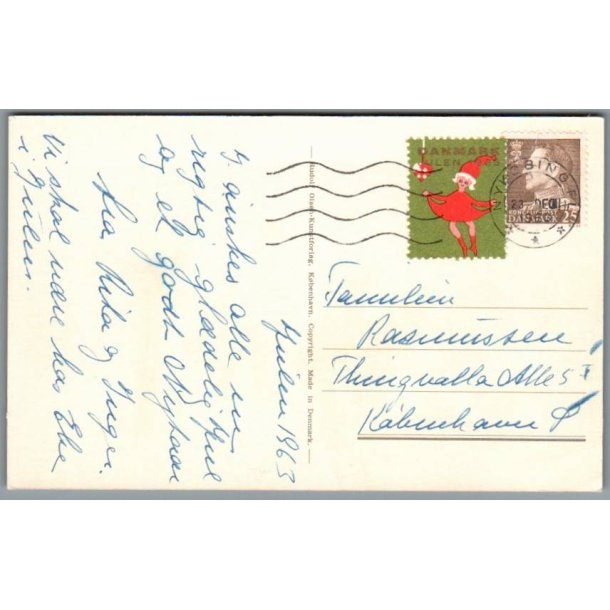 Julen 1963
I ønskes alle en
rigtig glædelig Jul
og et godt Nytaar
fra Rita og Inger.
Vi skal være hos Else
i Julen.
Rudolf Olsens Kunstforlag. København. Copyright. Made in Denmark.
DANMARK
JULEN 1963
NYKØBING F
23 DEC
DANMARK 25
Familien
Rasmussen
Thingvalla Alle 5 I
København S